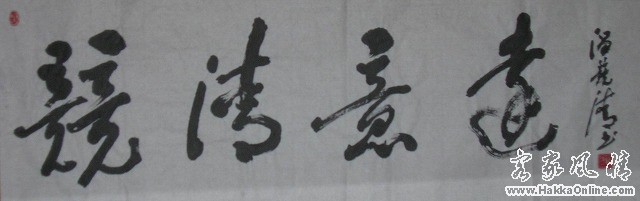 競清意遠
客家風情
www.HakkaOnline.com